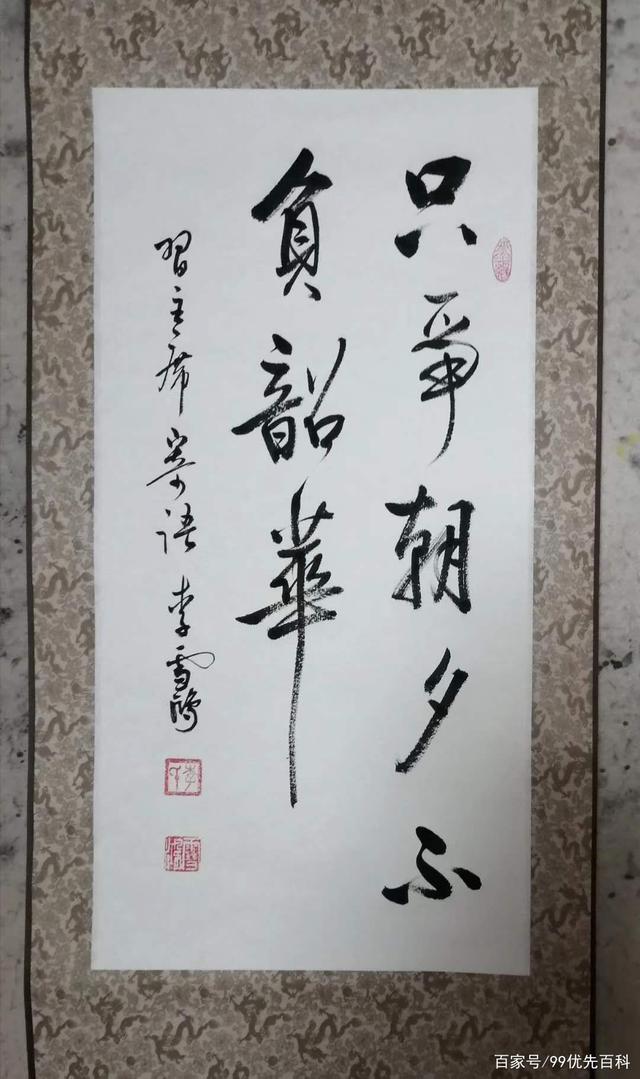 只爭朝夕不
負韶華
習主席寄語 李雪鴻
百家号/99优先百科